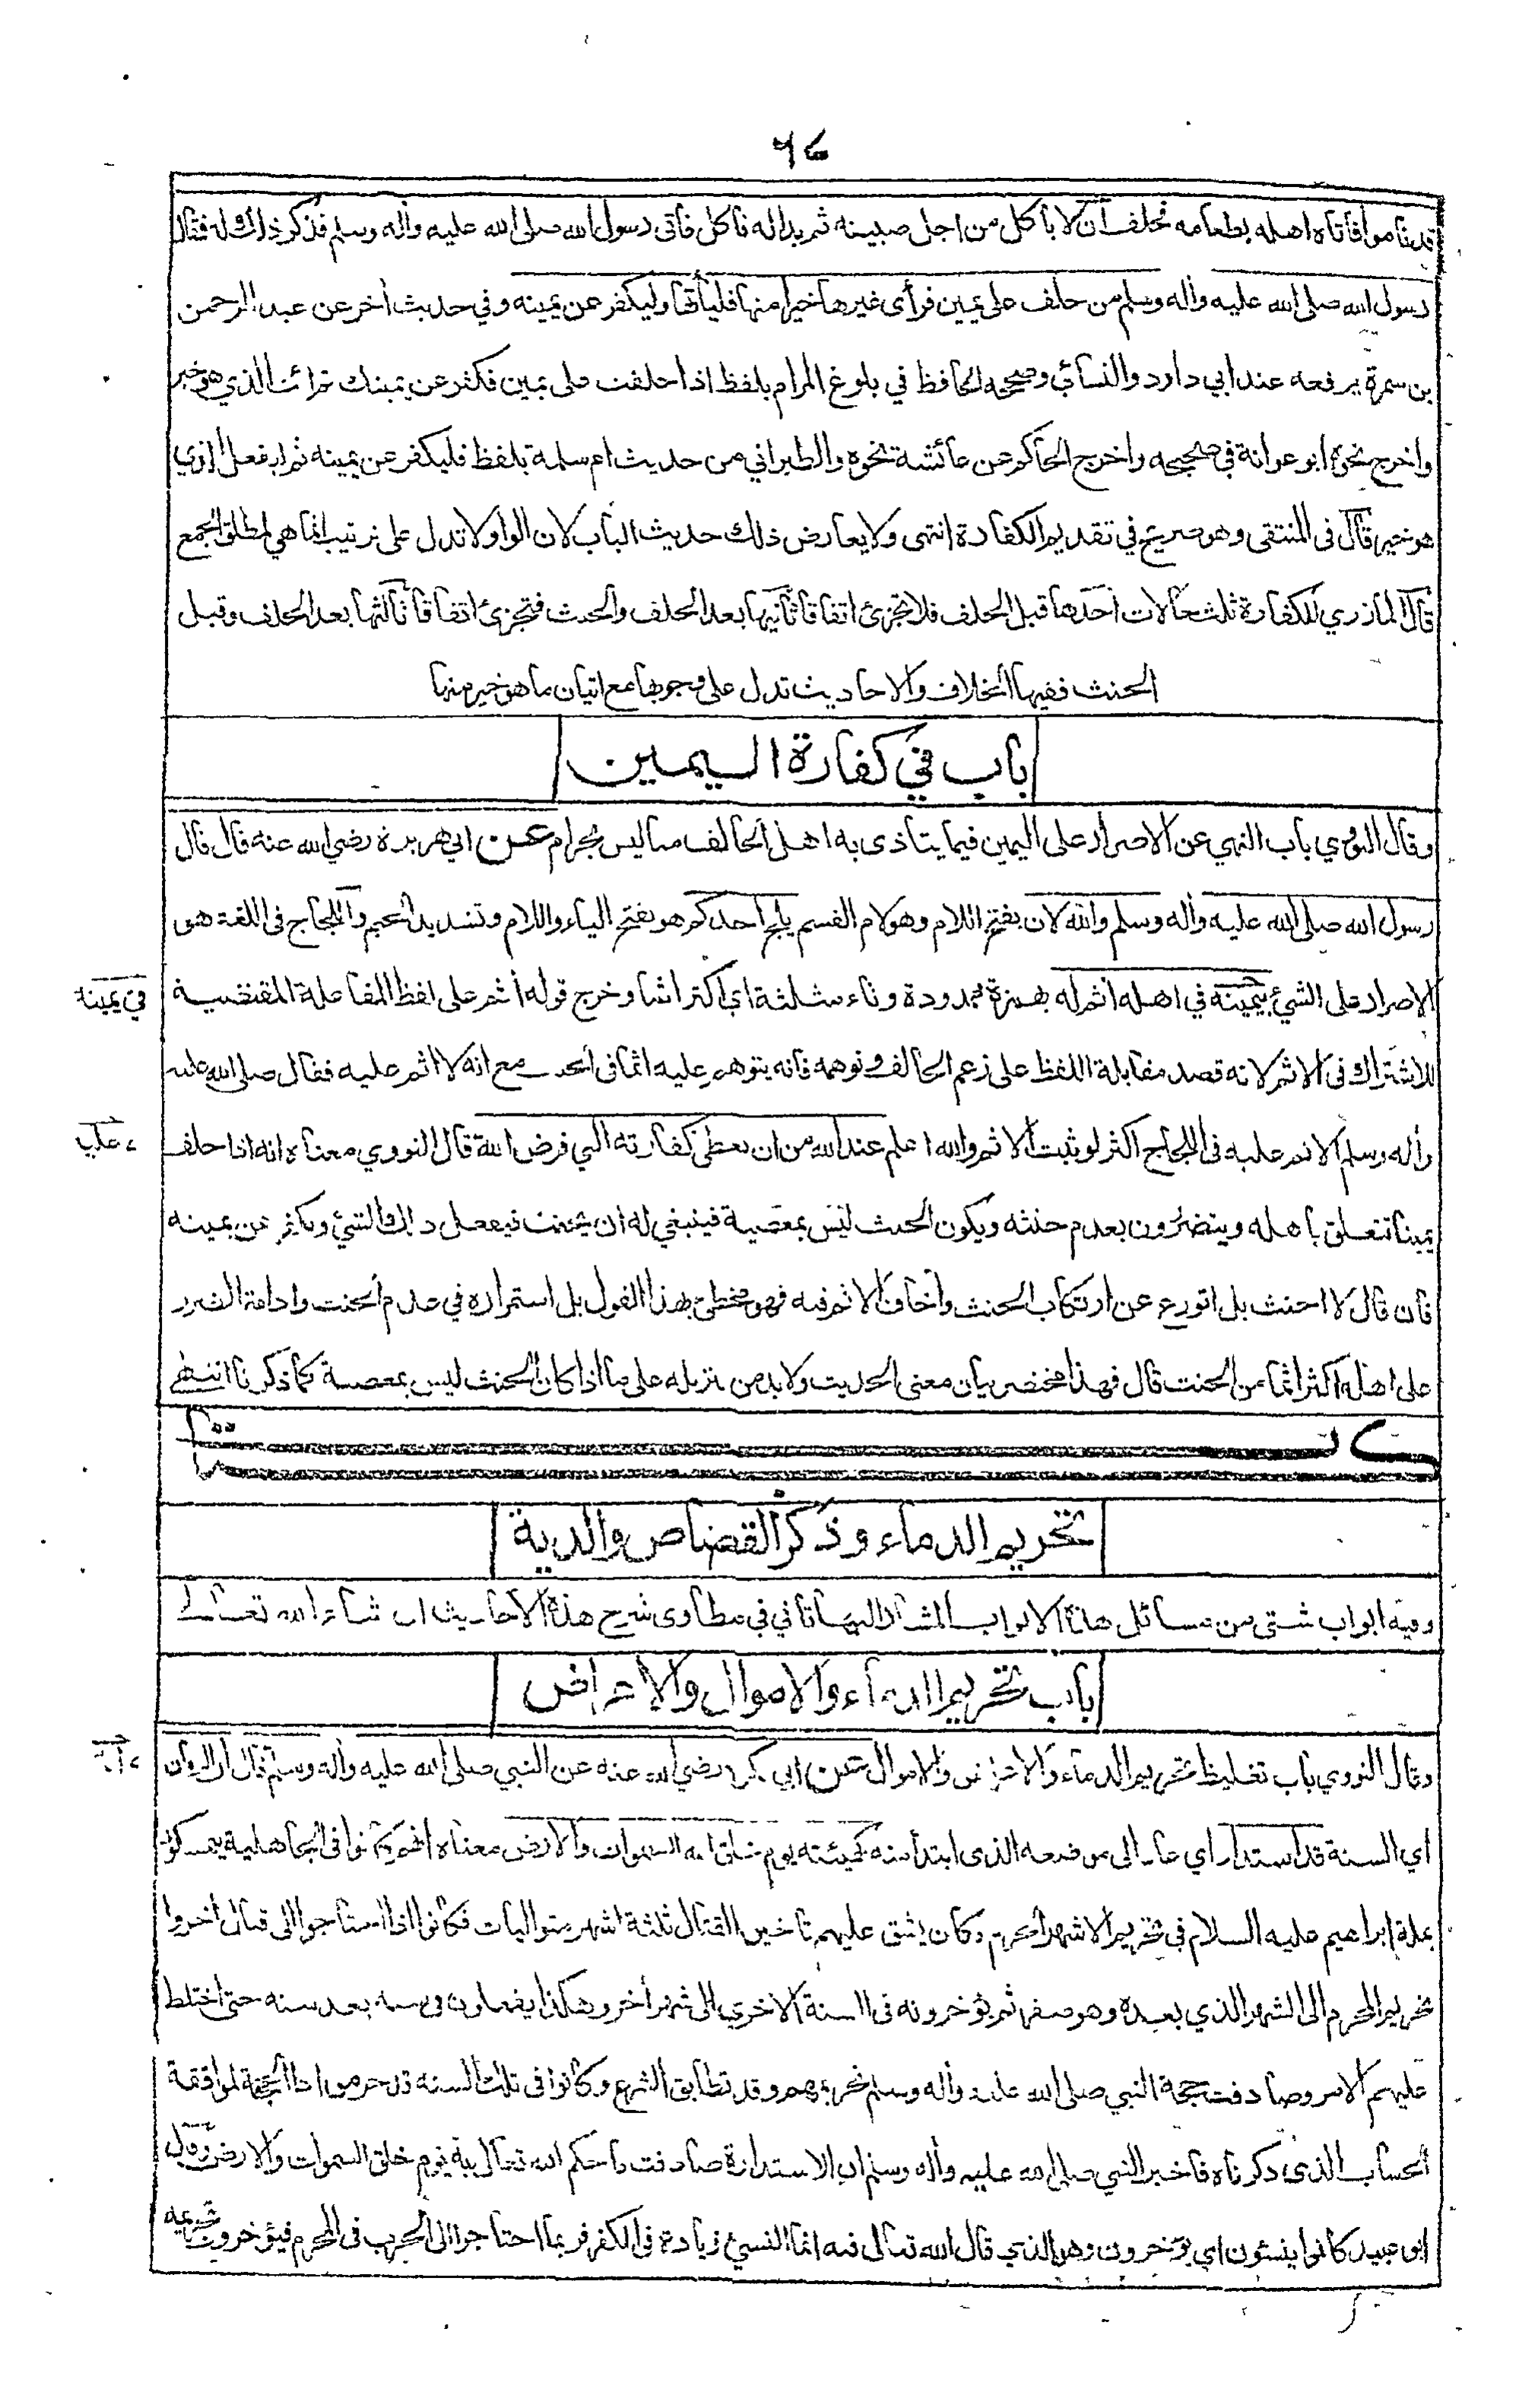 ٦٤
قد ناموا فأتاه اهله بطعامه فحلف ان لا يأكل من اجل صبيته ثم بدا له فأكل فأتى رسول الله صلى الله عليه وأله وسلم فذكر ذلك له فقال
رسول الله صلى الله عليه واله وسلم من حلف على يمين فرأى غيرها خيرا منها فليأتها وليكفر عن يمينه وفي حديث أخر عن عبد الرحمن
بن سمرة يرفعه عند ابي داود والنسائي وصححه الحافظ في بلوغ المرام بلفظ اذا حلفت على يمين فكفر عن يمينك ثم ائت الذي هو خير
واخرج نحوه ابو عوانة في صحيحه واخرج الحاكم عن عائشة نحوه والطبراني من حديث ام سلمة بلفظ فليكفر عن يمينه ثم ليفعل الذي
هو خير قال فى المنتقى وهو صريح في تقديم الكفارة انتهى ولا يعارض ذلك حديث الباب لان الواو لا تدل على ترتيب انما هي لمطلق الجمع
قال المازري للكفارة ثلث حالات أحدها قبل الحلف فلا تجزئ اتفاقا ثانيها بعد الحلف والحنث فتجزئ اتفاقا ثالثها بعد الحلف وقبل
الحنث ففيها الخلاف والاحاديث تدل على وجوبها مع اتيان ما هو خير منها
باب في كفارة اليمين
وقال النووي باب النهي عن الاصرار على اليمين فيما يتاذى به اهل الحالف مما ليس بحرام عن ابي هريرة رضي الله عنه قال قال
رسول الله صلى الله عليه وأله وسلم والله لان بفتح اللام وهو لام القسم يلج أحدكم هو بفتح الياء واللام وتشديد الجيم واللجاج فى اللغة هو
الاصرار على الشيئ بيمينه في اهله أثم له بهمزة ممدودة وثاء مثلثة اي اكثر اثما وخرج قوله أثم على لفظ المفاعلة المقتضية
في يمينه
للاشتراك فى الاثم لانه قصد مقابلة اللفظ على زعم الحالف وتوهمه فانه يتوهم عليه اثما فى الحنث مع انه لا اثم عليه فقال صلى الله عليه
وأله وسلم الاثم عليه فى اللجاج اكثر لو ثبت الاثم والله اعلم عند الله من ان يعطى كفارته التي فرض الله قال النووي معناه انه اذا حلف
عليه
يمينا تتعلق باهله ويتضررون بعدم حنثه ويكون الحنث ليس بمعصية فينبغي له ان يحنث فيفعل ذلك الشيئ ويكفر عن يمينه
فان قال لا احنث بل اتورع عن ارتكاب الحنث وأخاف الاثم فيه فهو مخطئ بهذا القول بل استمراره في عدم الحنث وادامة الضرر
على اهله اكثر اثما من الحنث قال فهذا مختصر بيان معنى الحديث ولا بد من تنزيله على ما اذا كان الحنث ليس بمعصية كما ذكرنا انتهى
كتاب
تحريم الدماء وذكر القصاص والدية
وفيه ابواب شتى من مسائل هذه الابواب المشار اليها تاتي في مطاوى شرح هذه الاحاديث ان شاء الله تعالى
باب تحريم الدماء والاموال والاعراض
وقال النووي باب تغليظ تحريم الدماء والاعراض والاموال عن ابي بكرة رضي الله عنه عن النبي صلى الله عليه وأله وسلم قال ان الزمان
اي السنة قد استدار اي عاد الى موضعه الذى ابتدأ منه كهيئته يوم خلق الله السموات والارض معناه انهم كانوا فى الجاهلية يتمسكون
بملة ابراهيم عليه السلام فى تحريم الاشهر الحرم وكان يشق عليهم تاخير القتال ثلثة اشهر متواليات فكانوا اذا احتاجوا الى قتال أخروا
تحريم المحرم الى الشهر الذي بعده وهو صفر ثم يؤخرونه فى السنة الاخرى الى شهر أخر وهكذا يفعلون في سنة بعد سنه حتى اختلط
عليهم الامر وصادفت حجة النبي صلى الله عليه وأله وسلم تحريمهم وقد تطابق الشرع وكانوا فى تلك السنه قد حرموا ذا الحجة لموافقة
الحساب الذى ذكرناه فاخبر النبي صلى الله عليه وأله وسلم ان الاستدارة صادفت ما حكم الله تعالى به يوم خلق السموات والارض وقال
ابو عبيد كانوا ينسئون اي يؤخرون وهو الذي قال الله تعالى فيه انما النسيئ زيادة فى الكفر فربما احتاجوا الى الحرب فى المحرم فيؤخرون تحريمه